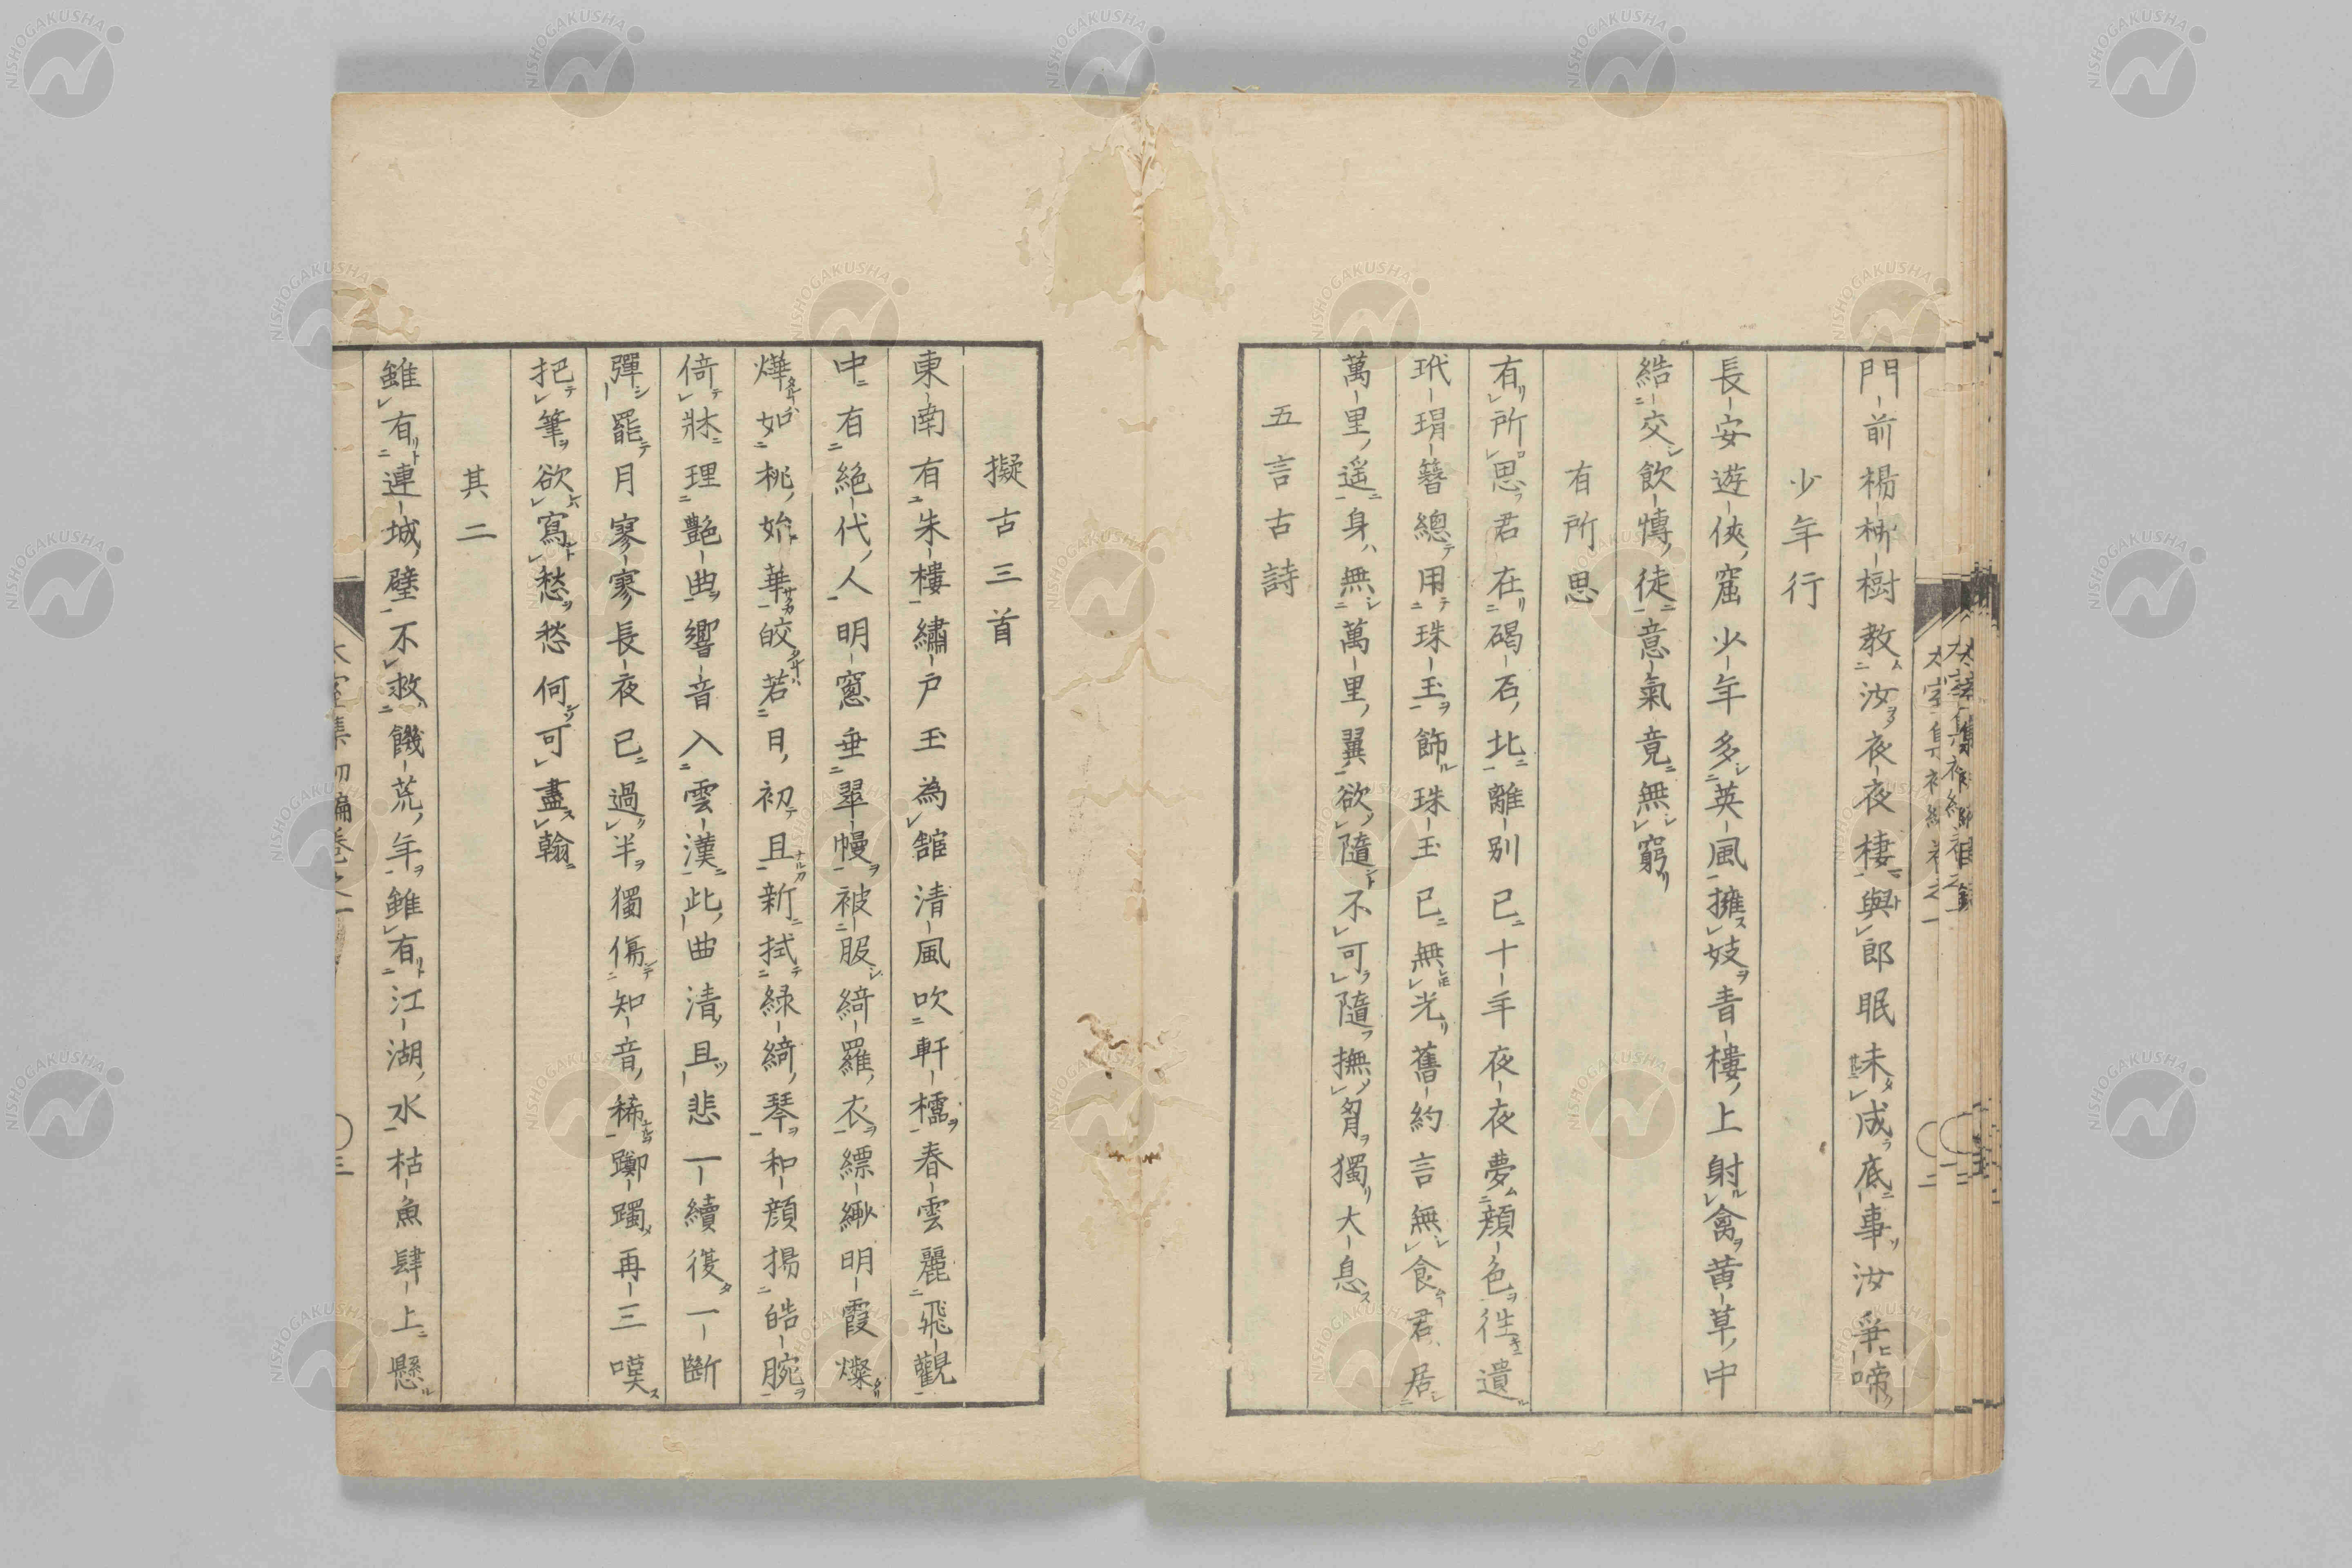 門前楊柳樹教汝夜夜棲與郎眠未成底事汝爭啼
少年行
長安遊俠窟少年多英風擁妓青樓上射禽黃草中
結交飲博徒意氣竟無窮
有所思
有所思君在碣石北離別已十年夜夜夢顔色往遺
玳瑁簪總用珠玉飾珠玉已無光舊約言無食君居
萬里遥身無萬里翼欲隨不可隨撫膺獨大息
五言古詩
擬古三首
東南有朱樓繡戸玉為舘清風吹軒櫺春雲麗飛觀
中有絶代人明窓垂翠幔被服綺羅衣縹緲明霞燦
燁如桃始華皎若日初旦新拭緑綺琴和顔揚皓腕
倚牀理艶曲響音入雲漢此曲清且悲一續復一斷
彈罷月寥寥長夜已過半獨傷知音稀躑躅再三嘆
把筆欲寫愁愁何可盡翰
其二
雖有連城璧不救饑荒年雖有江湖水枯魚肆上懸